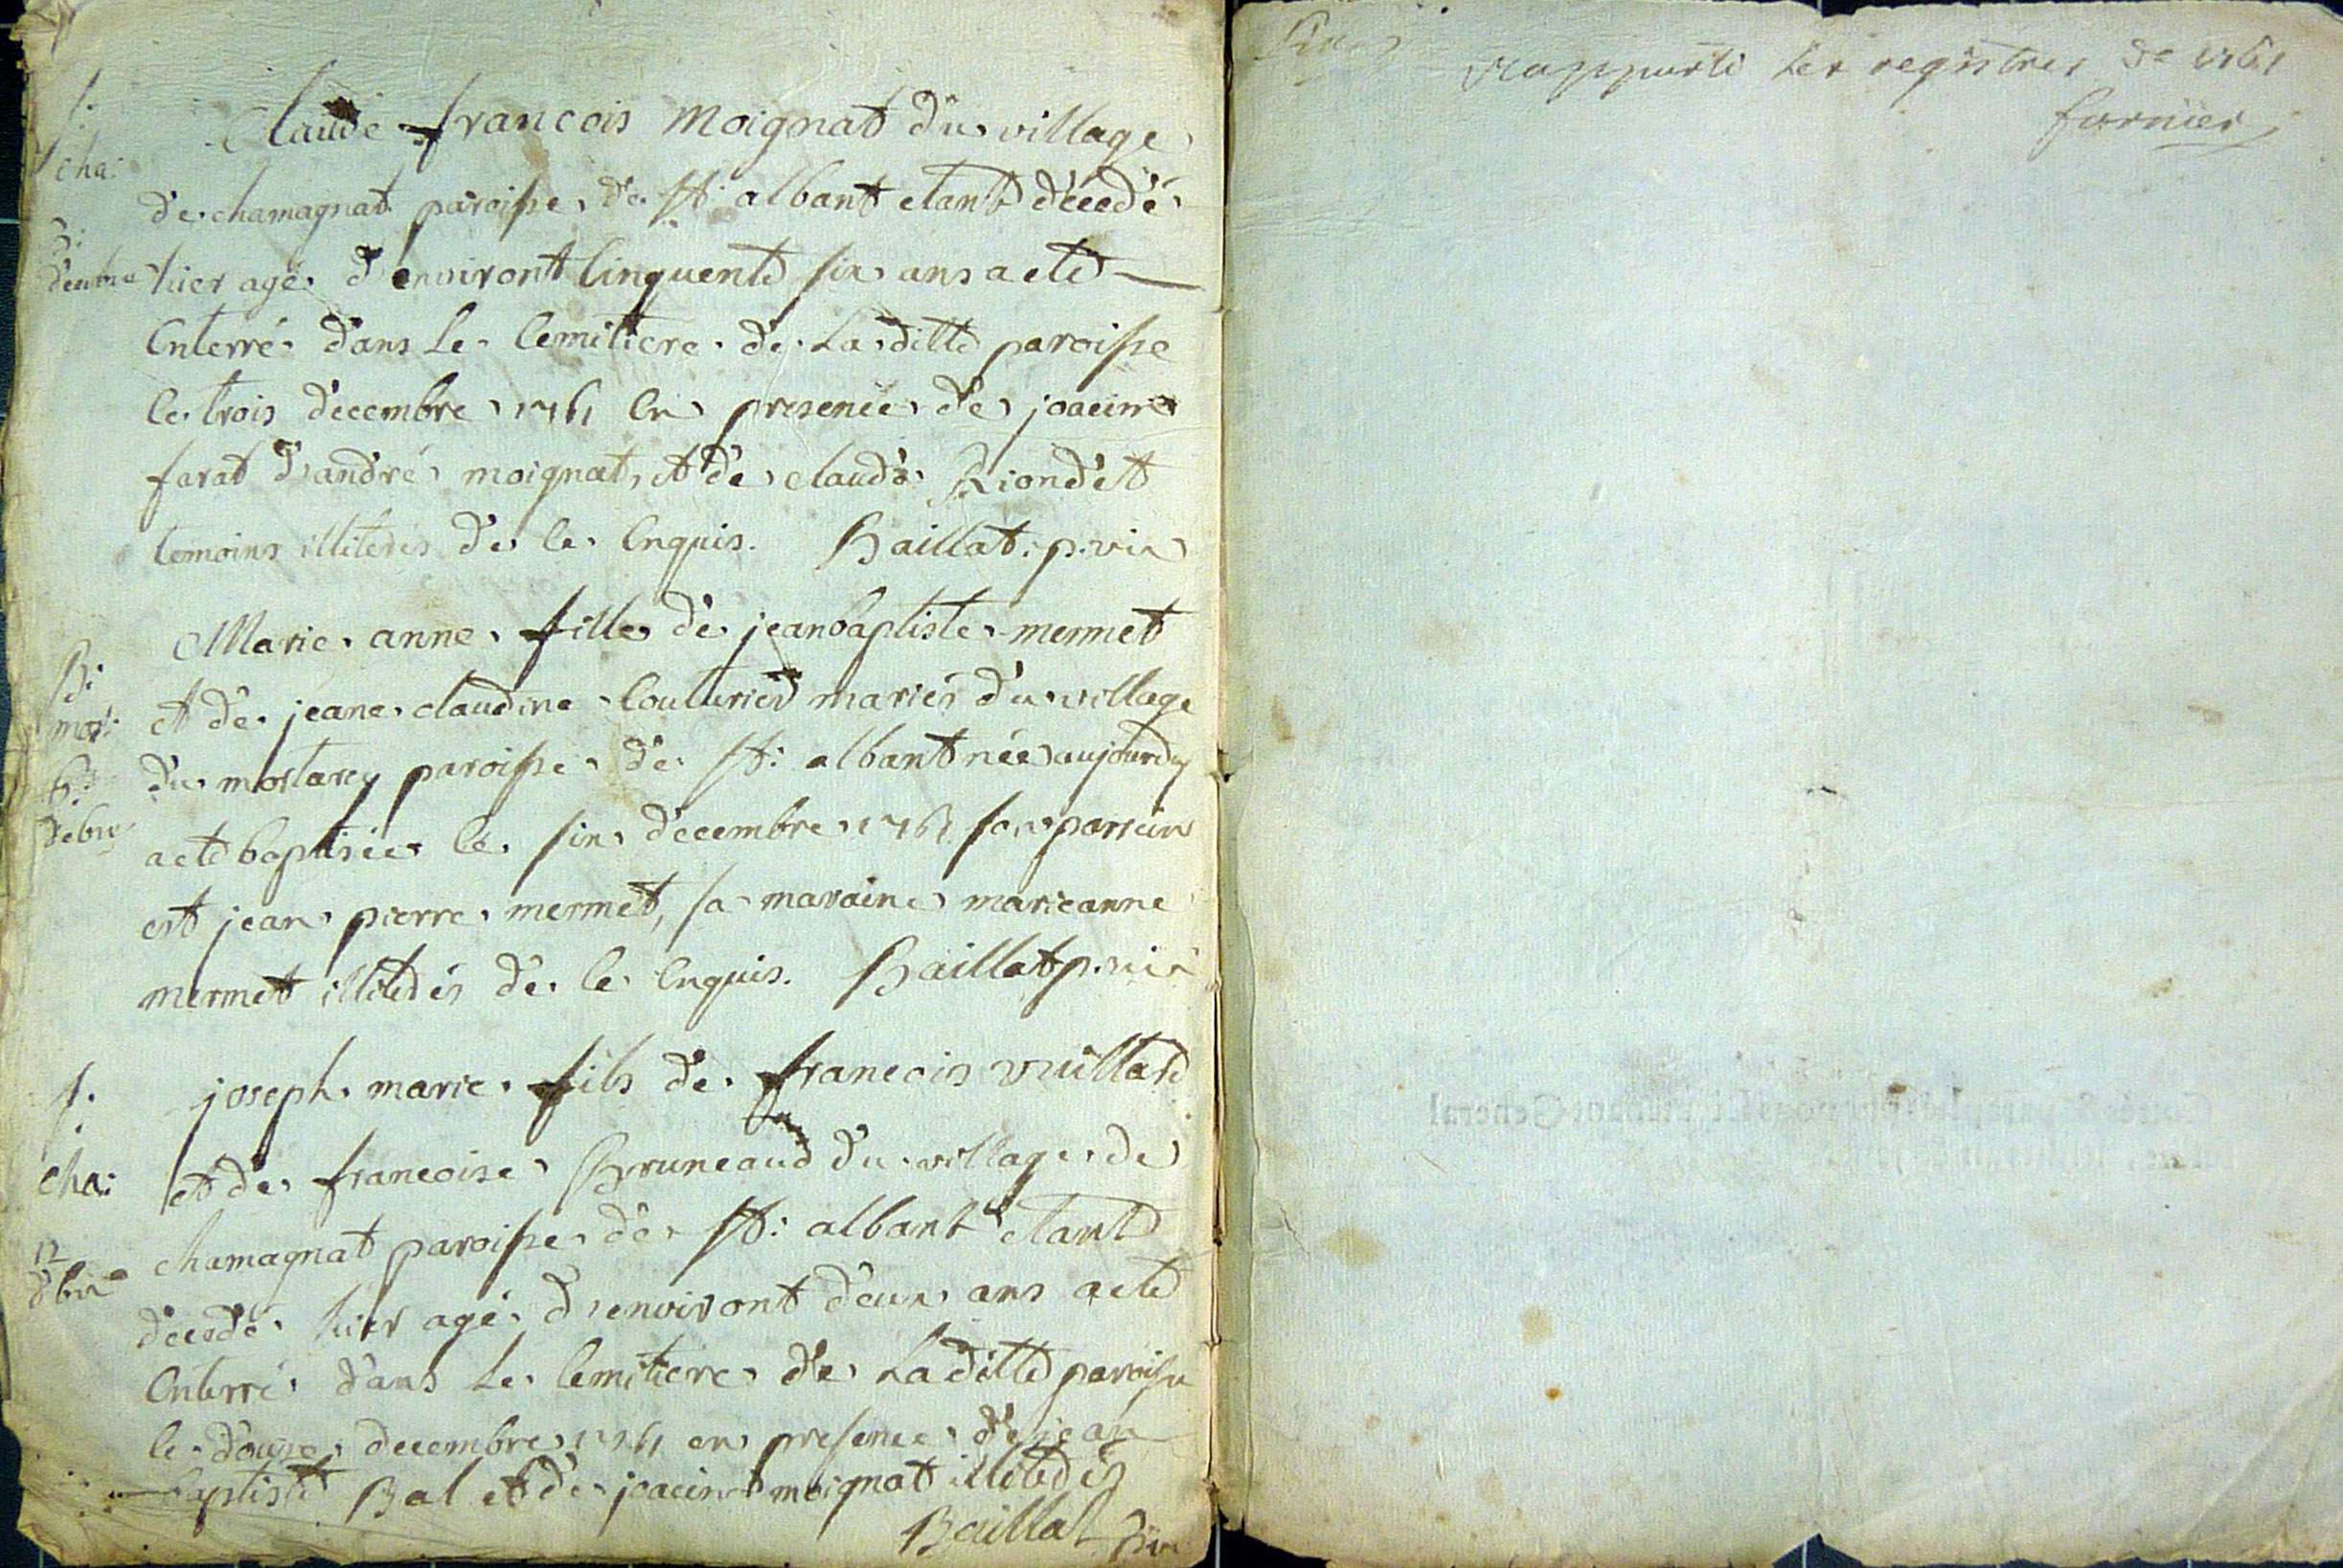 S.
cha:
3:
Claude francois Moignat du village
de chamagnat paroisse de St: albant etant decedé
hier agé d'environt cinquente six ans a eté
enterré dans le cemitiere de la ditte paroisse
le trois decembre 1761 en presence de joacim
farat d'andré moignat, et de claude Riondet
temoins illiterés de ce enquis. Baillat. p. vic
B:
mor:
6:
debre
Marie anne fille de jeanbaptiste mermet
et de jeane claudine Couturier mariés du village
du mortarey paroisse de St: albant née aujourdy
a eté baptisée le six decembre 1761 son parrain
est jean pierre mermet, sa maraine marieanne
mermet illiterés de ce enquis. Baillat p. vic
S.
cha:
12
dbre
joseph marie fils de francois vuillard
et de francoise Bruneaud du village de
chamagnat paroisse de St: albant etant
decedé hier agé d'environt deux ans a eté
enterré dans le cemitiere de la ditte paroisse
le douze decembre 1761 en presence de jean
baptiste Bal et de joacim moignat illiterés
Baillat
Rapporté les registres de 1761
fornier
General